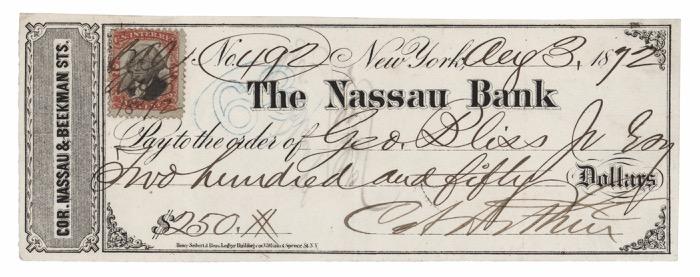 COR. NASSAU & BEEKMAN STS.
U.S. INTER. REV.
No. 492 New York, Aug 3, 1872
The Nassau Bank
Pay to the order of Geo. Bliss Jr Esq
Two hundred and fifty Dollars
$250.
C A Arthur
Henry Seibert & Bros. Ledger Building cor. William & Spruce St. N.Y.